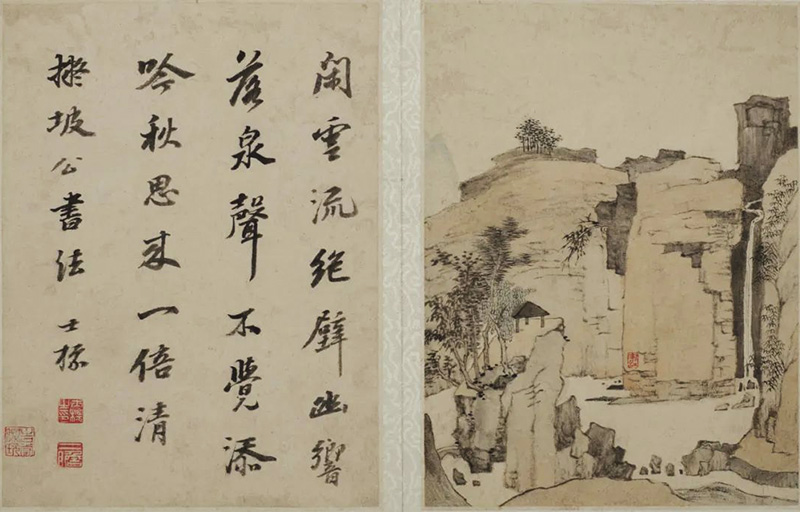 閑雲流絶壁幽響
落泉聲不覺添
吟秋思來一倍清
擬坡公書法 士標